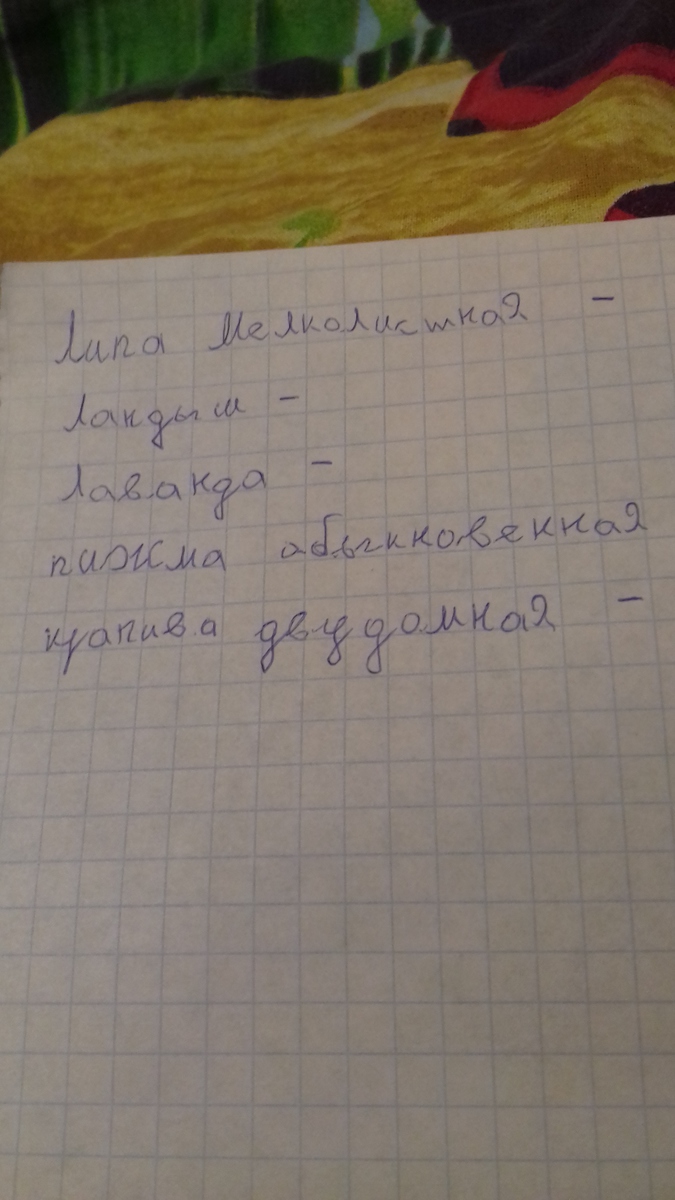 Липа Мелколистная -
Ландыш -
Лаванда -
пижма абыкновенная
крапива двудомная -